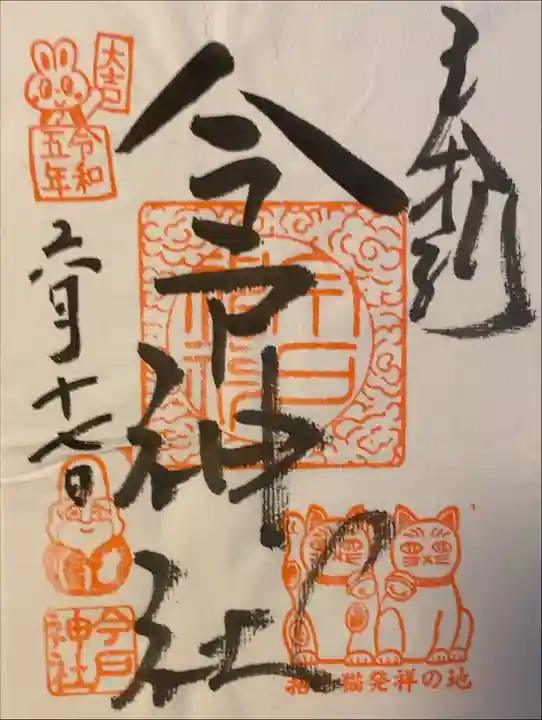 奉拝
今戸神社
大吉
令和
五年
六月十七日
今戸
神社
招き猫発祥の地